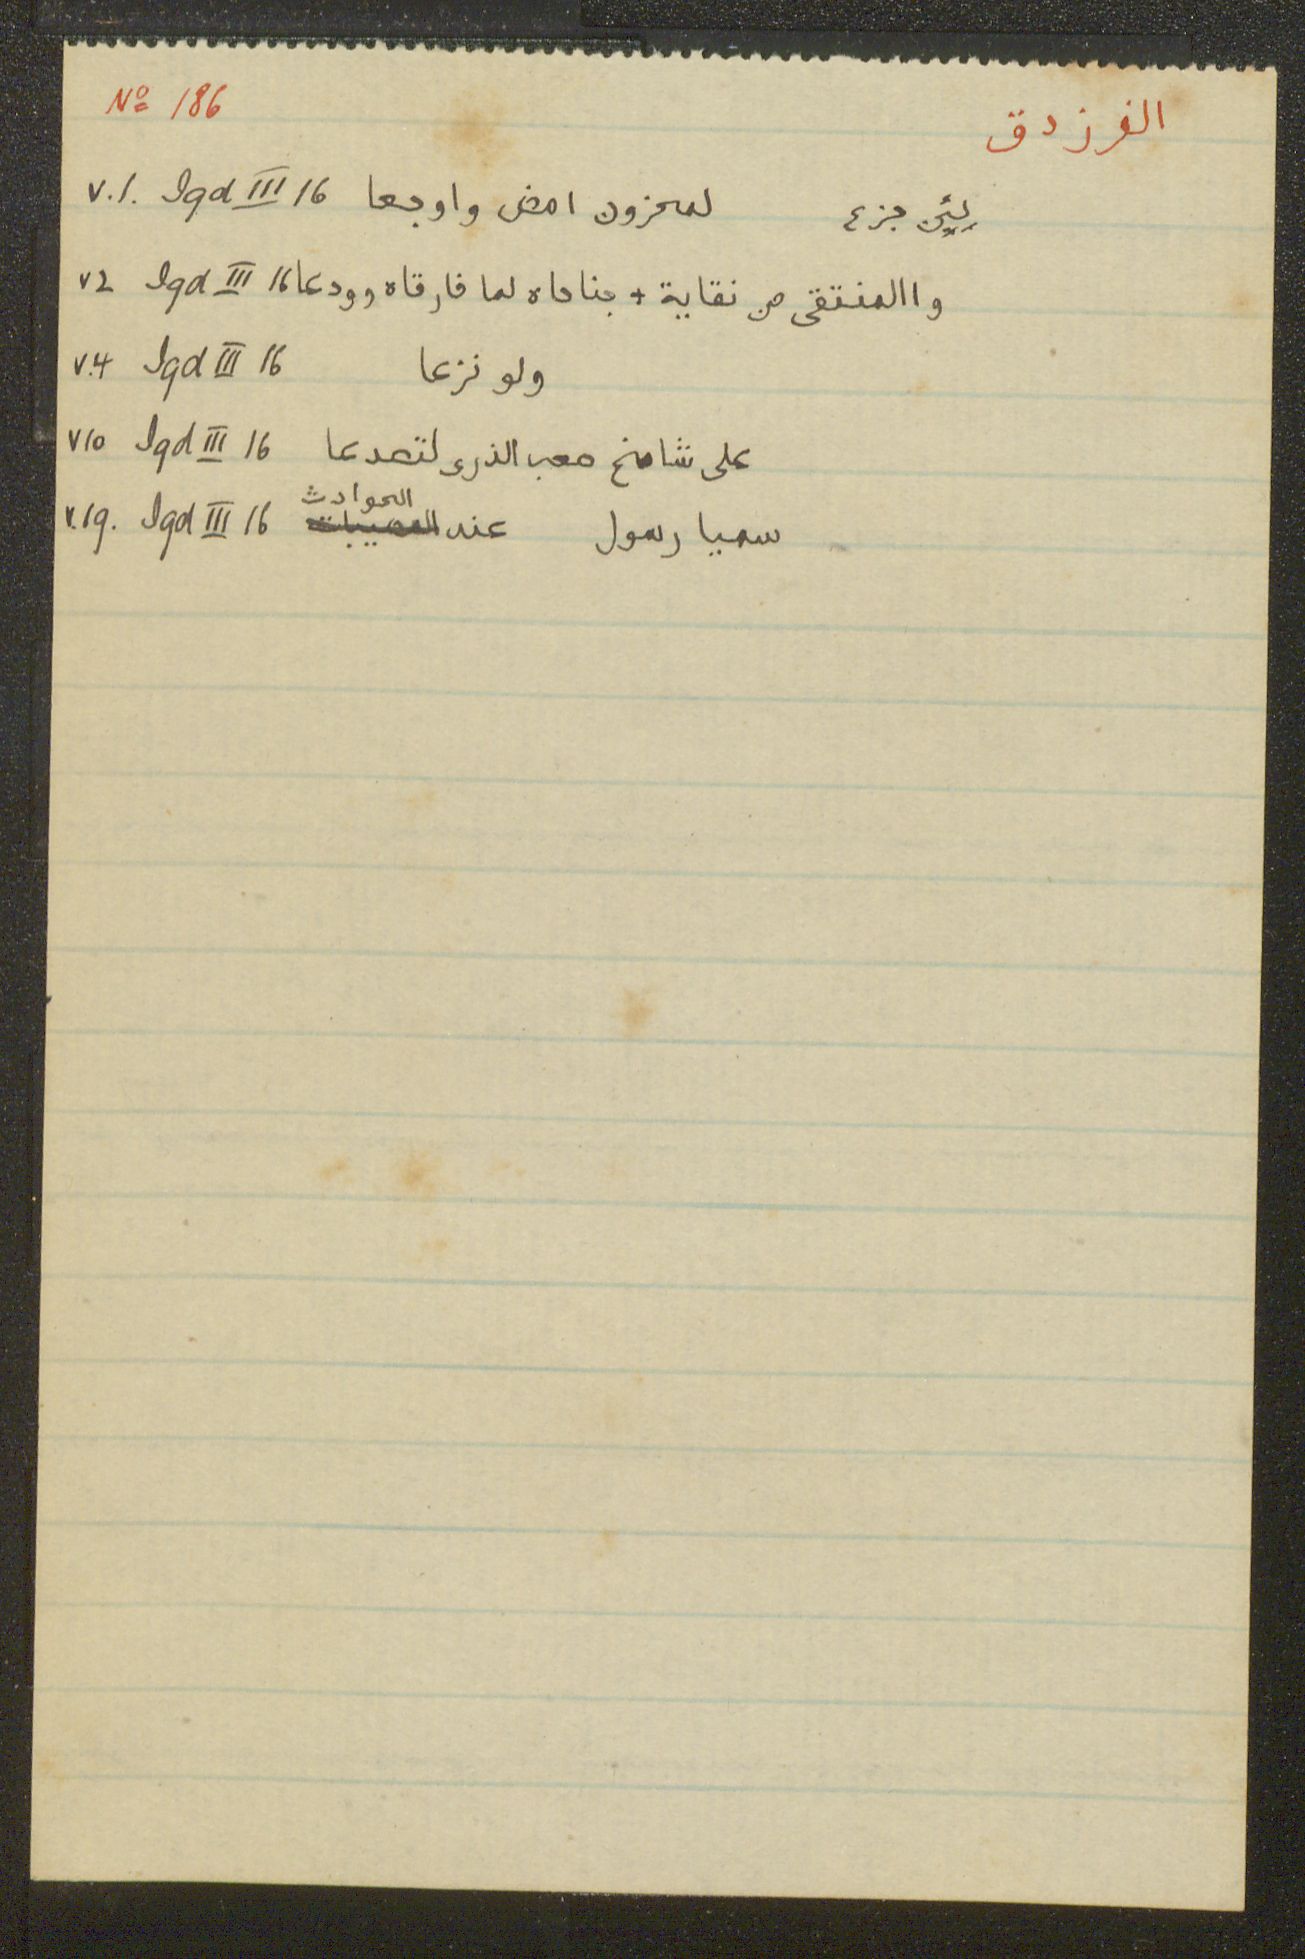 الفرزدق Nº 186
لئن جزع لمحزون امض واوجعا v.1. Iqd III 16
واالمنتقى من نقاية + جناحاه لما فارقاه وودعا v2 Iqd III 16
ولو نزعا v.4 Iqd III 16
على شامخ صعب الذرى لتصدعا v10 Iqd III 16
سميا رسول عند المصيبات الحوادث v.19. Iqd III 16